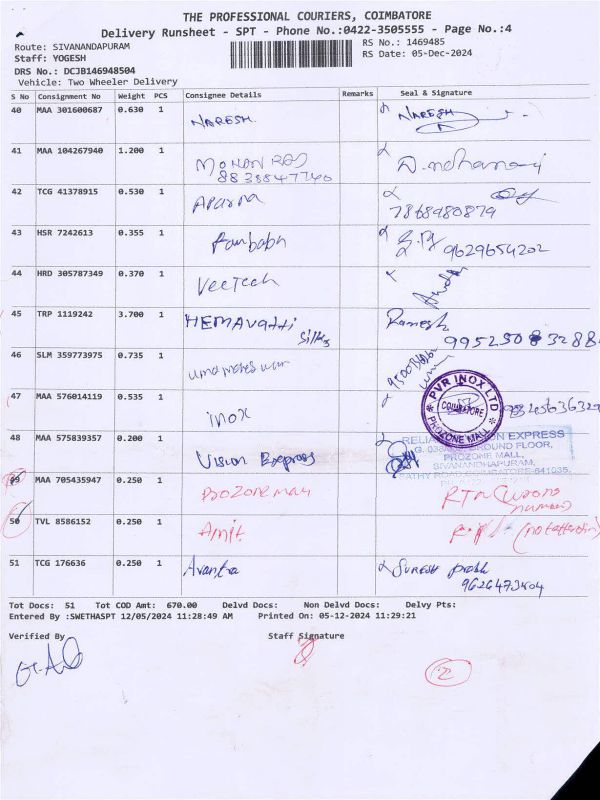 THE PROFESSIONAL COURIERS, COIMBATORE
Delivery Runsheet - SPT - Phone No.:0422-3505555 - Page No.:4
Route: SIVANANDAPURAM
RS No.: 1469485
Staff: YOGESH
RS Date: 05-Dec-2024
DRS No.: DCJB146948504
Vehicle: Two Wheeler Delivery
S No Consignment No Weight PCS Consignee Details Remarks Seal & Signature
40 MAA 301600687 0.630 1 NARESH NARESH
41 MAA 104267940 1.200 1 MOHAN RAJ
8838847740
42 TCG 41378915 0.530 1 Aparna 7868980879
43 HSR 7242613 0.355 1 Rambabu 9629654202
44 HRD 305787349 0.370 1 VeeTech
45 TRP 1119242 3.700 1 HEMAVatHi Silks Ramesh 9952508 3288
46 SLM 359773975 0.735 1
47 MAA 576014119 0.535 1 inox
PVR INOX LTD
COIMBATORE
PROZONE MALL
48 MAA 575839357 0.200 1 Vision Express
VISION EXPRESS
GROUND FLOOR,
PROZONE MALL,
SIVANANDHAPURAM,
COIMBATORE-641035.
49 MAA 705435947 0.250 1 Prozone mall RTN (wrong number)
50 TVL 8586152 0.250 1 Amit
51 TCG 176636 0.250 1 Avantra SURESH
9626473404
Tot Docs: 51 Tot COD Amt: 670.00 Delvd Docs: Non Delvd Docs: Delvy Pts:
Entered By :SWETHASPT 12/05/2024 11:28:49 AM Printed On: 05-12-2024 11:29:21
Verified By Staff Signature
2